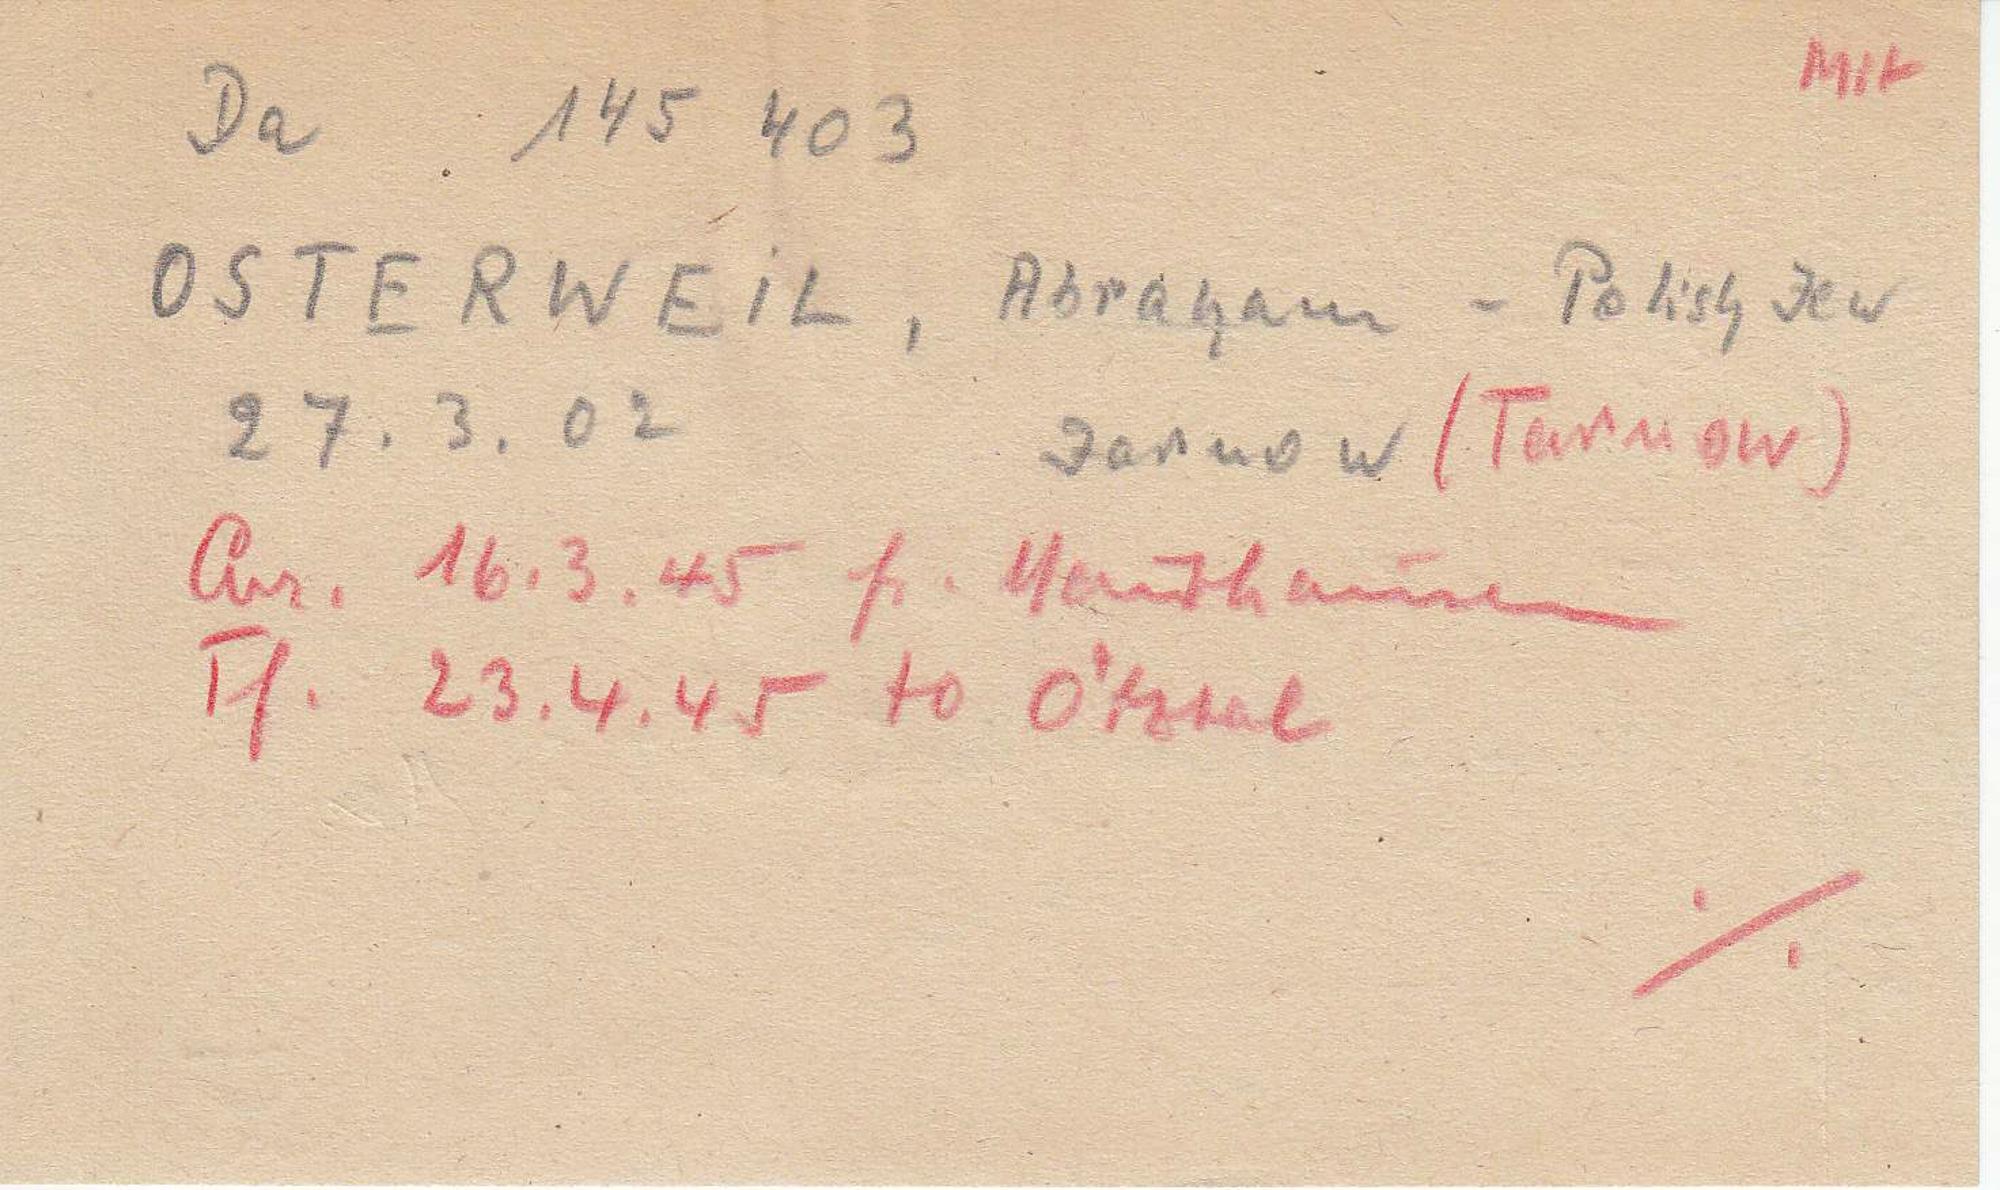 Mit
Da 145 403
OSTERWEiL, Abraham - Polish Jew
27.3.02 Jarnow (Tarnow)
Arr. 16.3.45 fr. Mauthausen
Tf. 23.4.45 to Ötztal